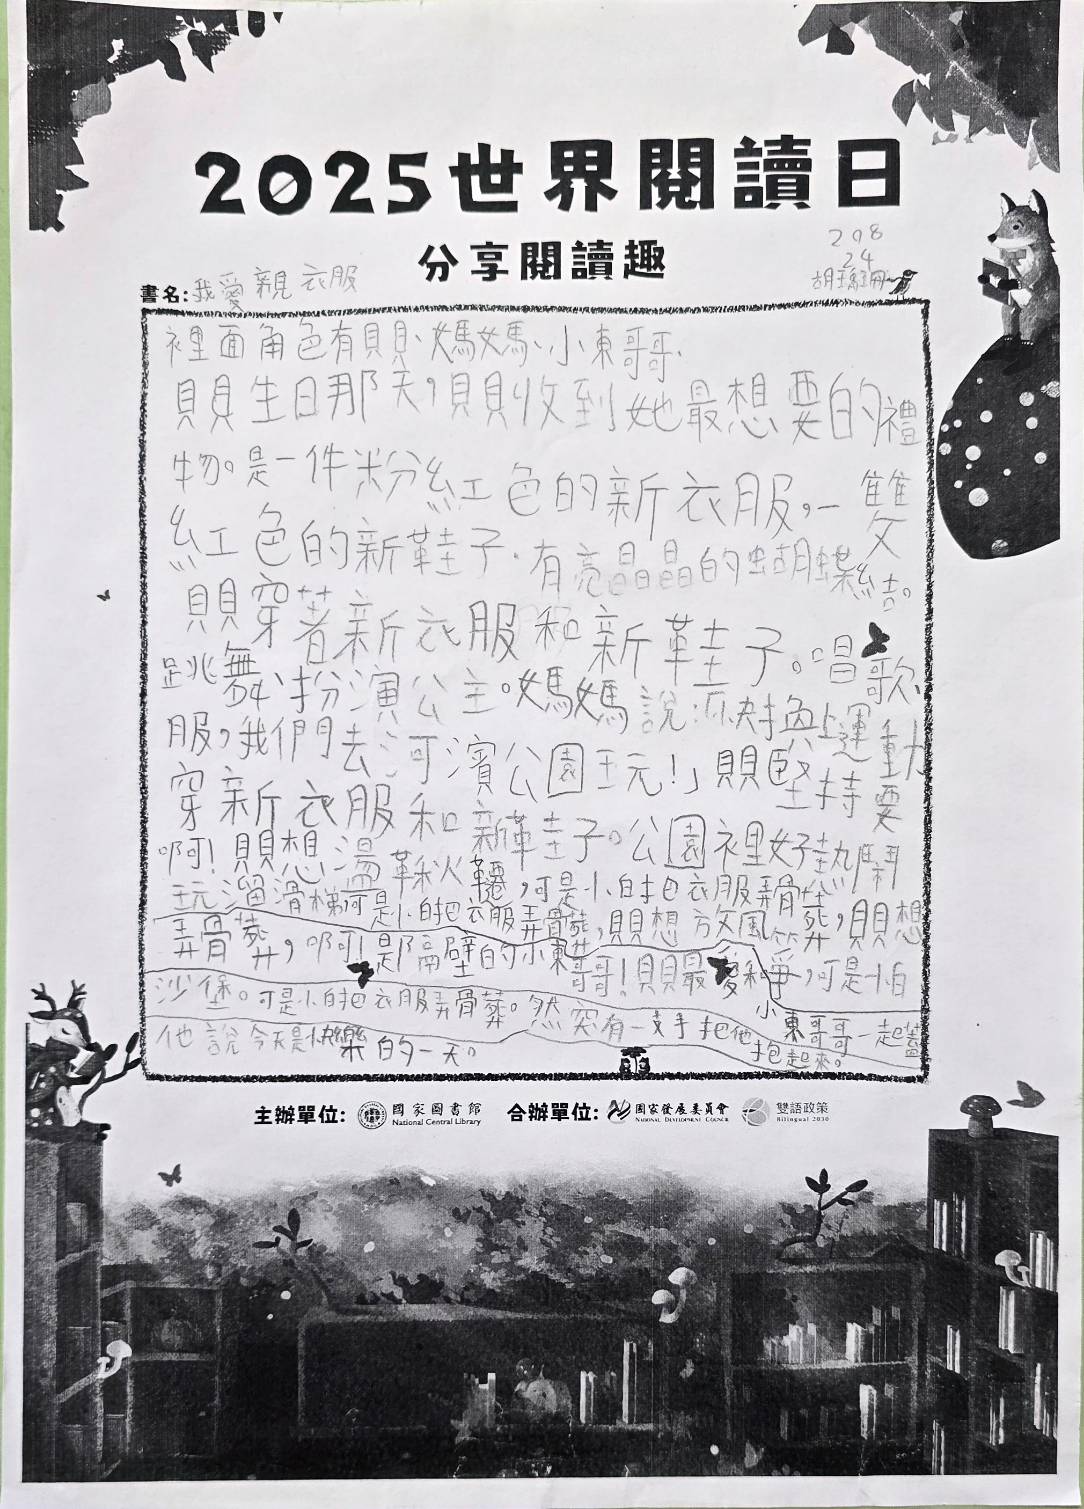 2025世界閱讀日
分享閱讀趣
208
24
書名:我愛親衣服
裡面角色有貝貝、媽媽、小東哥哥、
貝貝生日那天,貝貝收到她最想要的禮
物。是一件粉紅色的新衣服,一雙
紅色的新鞋子.有亮晶晶的蝴蝶結。
貝貝穿著新衣服和新鞋子。唱歌、
跳舞、扮演公主。媽媽說:快換上運動
服,我們去河濱公園玩!」貝貝堅持要
穿新衣服和新鞋子。公園裡好熱鬧
啊!貝貝想盪鞦韆,可是小怕把衣服弄髒,貝貝想
玩溜滑梯可是小怕把衣服弄髒,貝貝想放風箏,可是小怕
弄髒,啊!是隔壁的小東哥哥!貝貝最愛和小東哥哥一起蓋
沙堡。可是小怕把衣服弄髒。然突有一支手把他抱起來。
他說今天是快樂的一天。
主辦單位: 國家圖書館 合辦單位: 國家發展委員會 雙語政策
National Central Library NATIONAL DEVELOPMENT COUNCIL Bilingual 2030